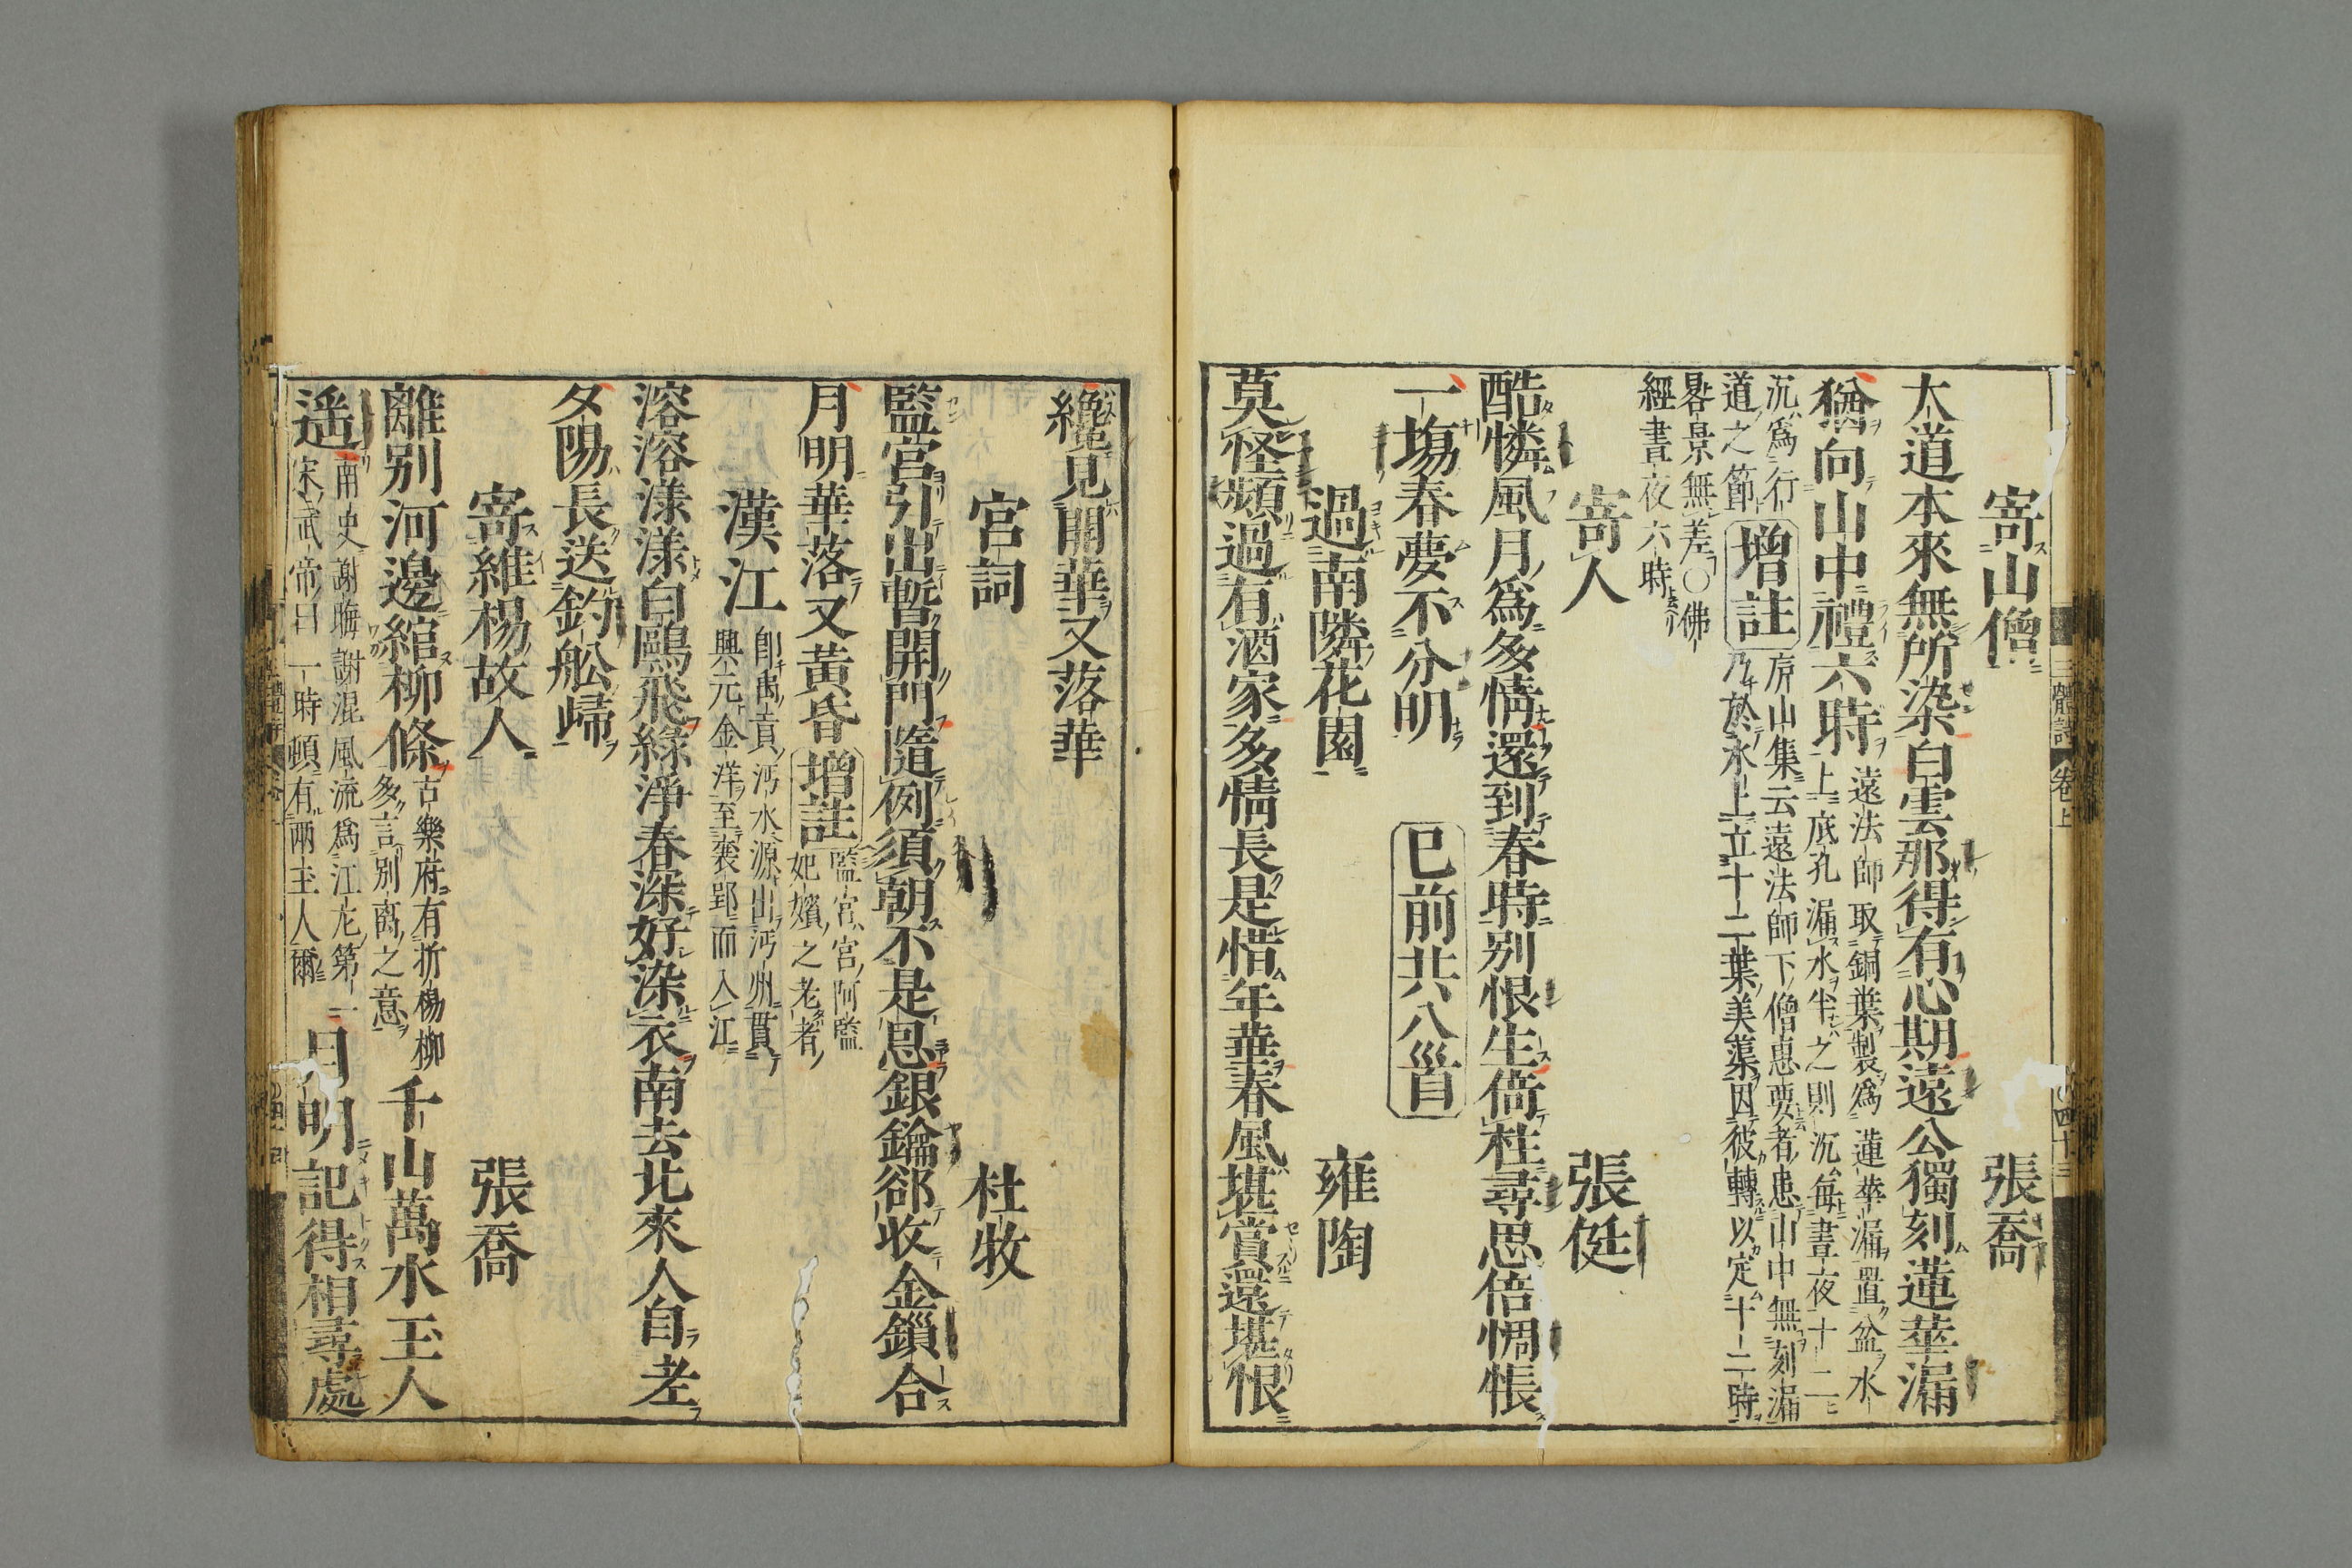 寄山僧　張喬
大道本來無所染白雲那得有心期遠公獨刻蓮華漏
猶向山中禮六時
遠法師取銅葉製爲蓮華漏置盆水
上底孔漏水半之則沉每晝夜十二
沉爲行
道之節
增註
庐山集云遠法師下僧惠要者患山中無刻漏
乃於水上立十二葉美蕖因彼轉以定十二時
晷景無差○佛
經晝夜六時
寄人　張侹
酷憐風月爲多情還到春時別恨生倚柱尋思倍惆悵
一塲春夢不分明　已前共八首
過南隣花園　雍陶
莫怪頻過有酒家多情長是惜年華春風堪賞還堪恨
三體詩　卷上　四十三
纔見開華又落華
宮詞　杜牧
監宮引出暫開門隨例須朝不是恩銀鑰郤收金鎖合
月明華落又黃昏
增註
監宮宮阿監
妃嬪之老者
漢江
卽禹貢沔水源出沔州貫
興元金洋至襄郢而入江
溶溶漾漾白鷗飛綠淨春深好染衣南去北來人自老
夕陽長送釣船歸
寄維楊故人　張喬
離別河邊綰柳條
古樂府有折楊柳
多言別离之意
千山萬水玉人
遥
南史謝晦謝混風流爲江左第一
宋武帝曰一時頓有兩玉人爾
月明記得相尋處